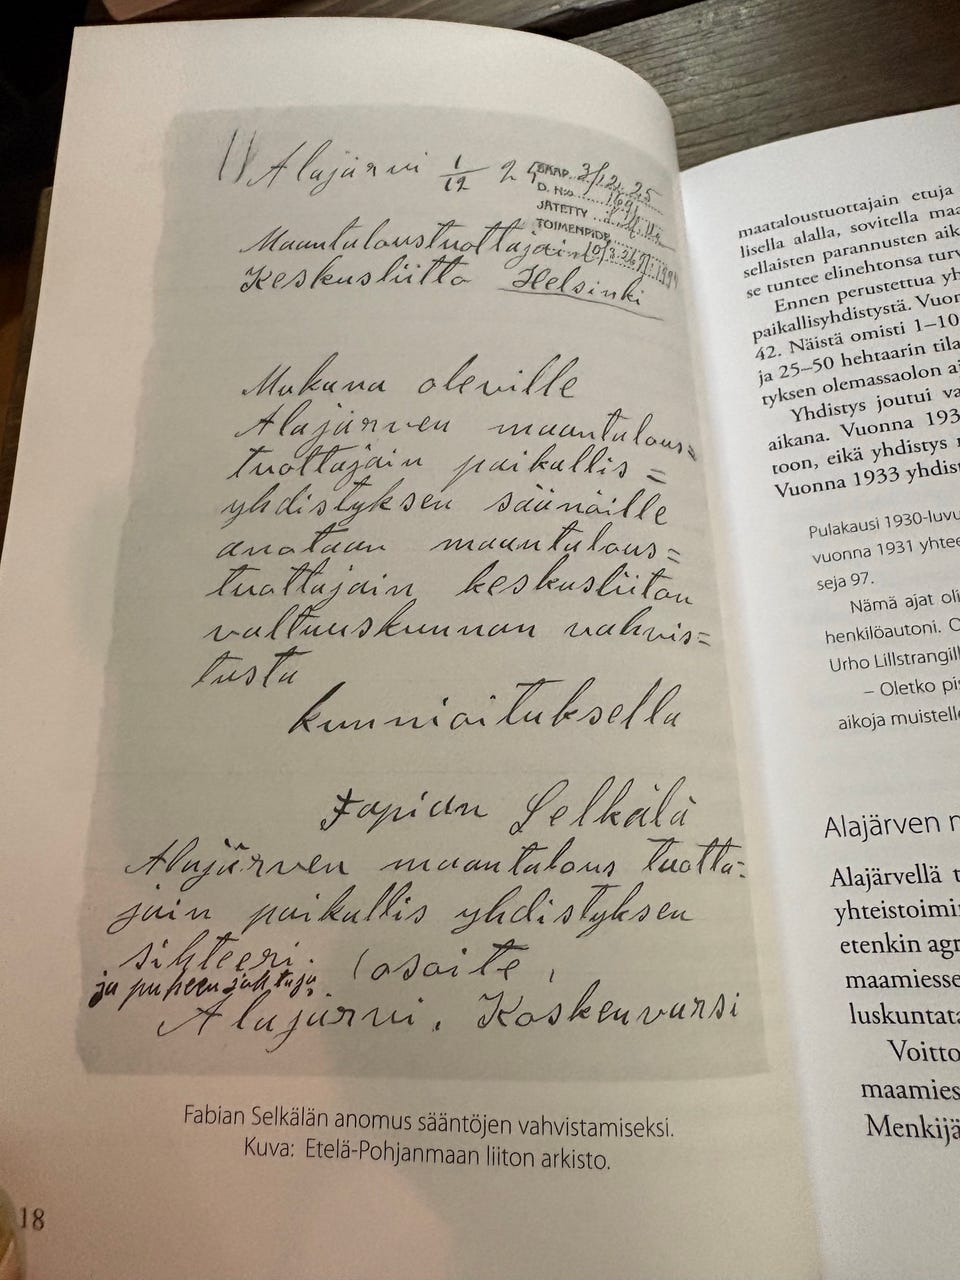 Alajärvi 1/12 25
SAAP. 3/12.25
D. N:o
JÄTETTY
TOIMENPIDE
Maantaloustuottajain
Keskusliitto Helsinki
Mukana oleville
Alajärven maantalous=
tuottajain paikallis=
yhdistyksen säänöille
anotaan maantalous=
tuottajain keskusliiton
valtuuskunnan vahvis=
tusta
kunnioituksella
Fapian Selkälä
Alajärven maantalous tuotta=
jain paikallis yhdistyksen
sihteeri. (osoite,
ja puheenjohtaja
Alajärvi. Koskenvarsi
Fabian Selkälän anomus sääntöjen vahvistamiseksi.
Kuva: Etelä-Pohjanmaan liiton arkisto.
18
maataloustuottajain etuja
lisella alalla, sovitella maa
sellaisten parannusten aik
se tuntee elinehtonsa turv
Ennen perustettua yh
paikallisyhdistystä. Vuon
42. Näistä omisti 1–10
ja 25–50 hehtaarin tila
tyksen olemassaolon ai
Yhdistys joutui va
aikana. Vuonna 193
toon, eikä yhdistys
Vuonna 1933 yhdist
Pulakausi 1930-luvu
vuonna 1931 yhtee
seja 97.
Nämä ajat oli
henkilöautoni. O
Urho Lillstrangill
– Oletko pis
aikoja muistelle
Alajärven
Alajärvellä t
yhteistoimin
etenkin agr
maamiesse
luskuntata
Voitto
maamies
Menkijä